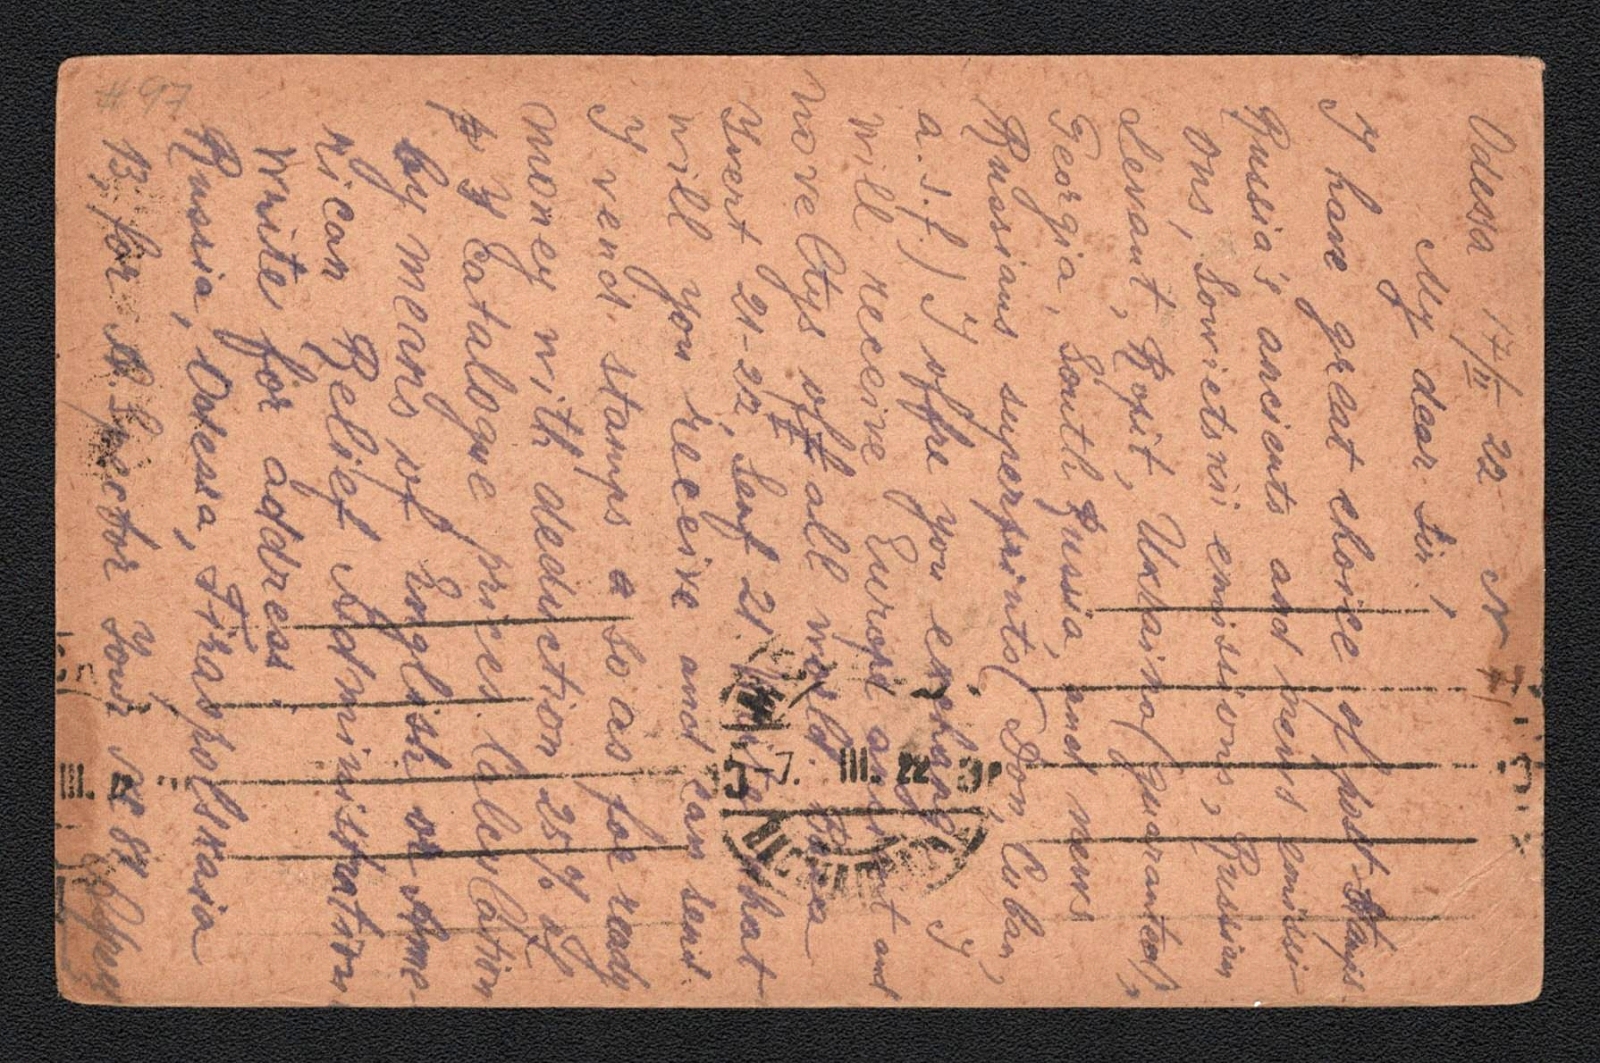 Odessa 17/II 22
My dear Sir,
I have great choice of post-stamps
Russia's ancients and news emissi-
ons, Sowietskii emissions, Russian
Levant, Ropit, Ukraina (guaranted),
Georgia, South Russia, and news
Russians superprints (Don, Cuban,
a.s.f.) I offre you exchange I
will receive Europa and
noveltys of all world. Basa
Yvert 21-22, Senf 21. What
will you receive and can send.
I vend stamps also as for ready
money with deduction 25% of
Y Catalogue prices. Calculation
by means of English or Ame-
rican Relief Administration
Write for address
Russia, Odessa, Tiraspolskaia
13, for Spector Your
#97
7. III. 22
III. 22